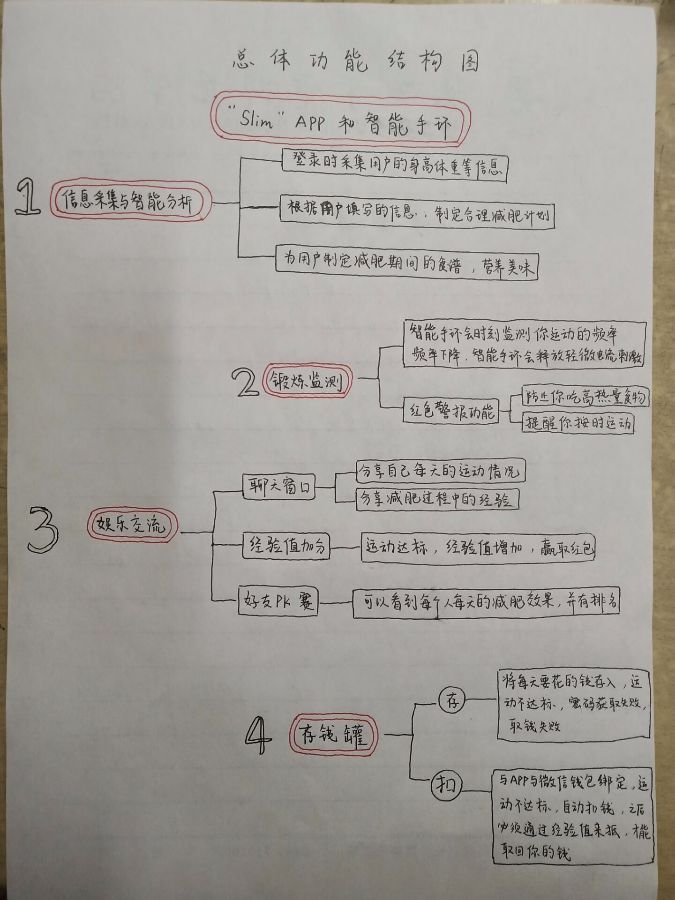 总体功能结构图
"Slim" APP 和智能手环
1
信息采集与智能分析
登录时采集用户的身高体重等信息
根据用户填写的信息，制定合理减肥计划
为用户制定减肥期间的食谱，营养美味
2
锻炼监测
智能手环会时刻监测你运动的频率
频率下降，智能手环会释放轻微电流刺激
红色警报功能
防止你吃高热量食物
提醒你按时运动
3
娱乐交流
聊天窗口
分享自己每天的运动情况
分享减肥过程中的经验
经验值加分
运动达标，经验值增加，赢取红包
好友PK赛
可以看到每个人每天的减肥效果，并有排名
4
存钱罐
存
将每天要花的钱存入，运
动不达标，密码获取失败，
取钱失败
扣
与APP与微信钱包绑定，运
动不达标，自动扣钱，之后
必须通过经验值来抵，才能
取回你的钱